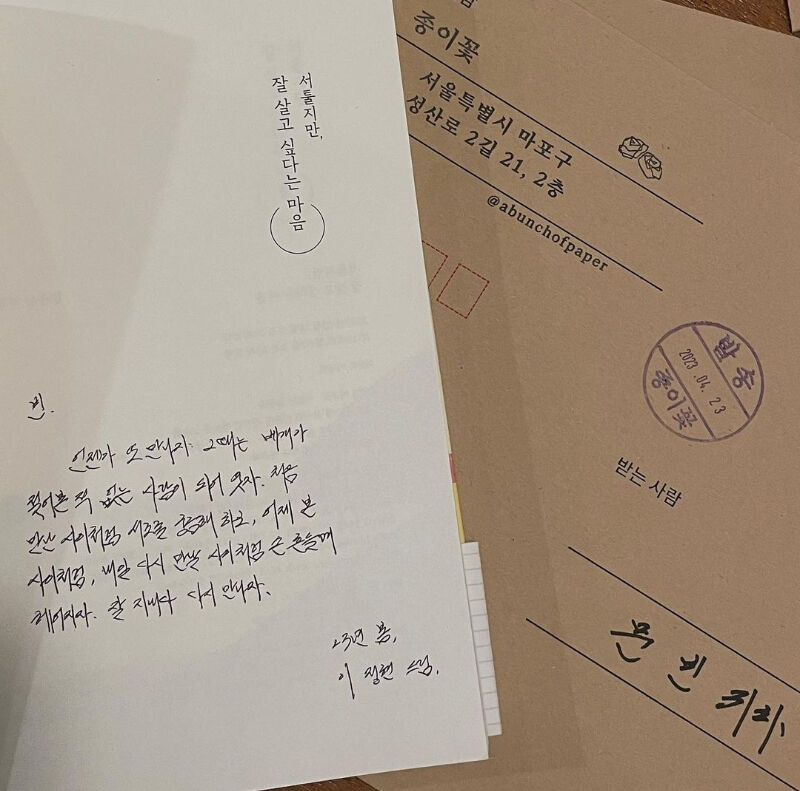 서툴지만,
잘 살고 싶다는 마음
빈.
언젠가 또 만나자. 그때는 베개가
젖어본 적 없는 사람이 되어 있자. 처음
만난 사이처럼 서로를 궁금해 하고, 어제 본
사이처럼, 내일 다시 만날 사이처럼 손 흔들며
헤어지자. 잘 지내다 다시 만나자.
23년 봄,
이 정현 드림.
종이꽃
서울특별시 마포구
성산로 2길 21, 2층
@abunchofpaper
발송
2023.04.23
종이꽃
받는 사람
문 빈